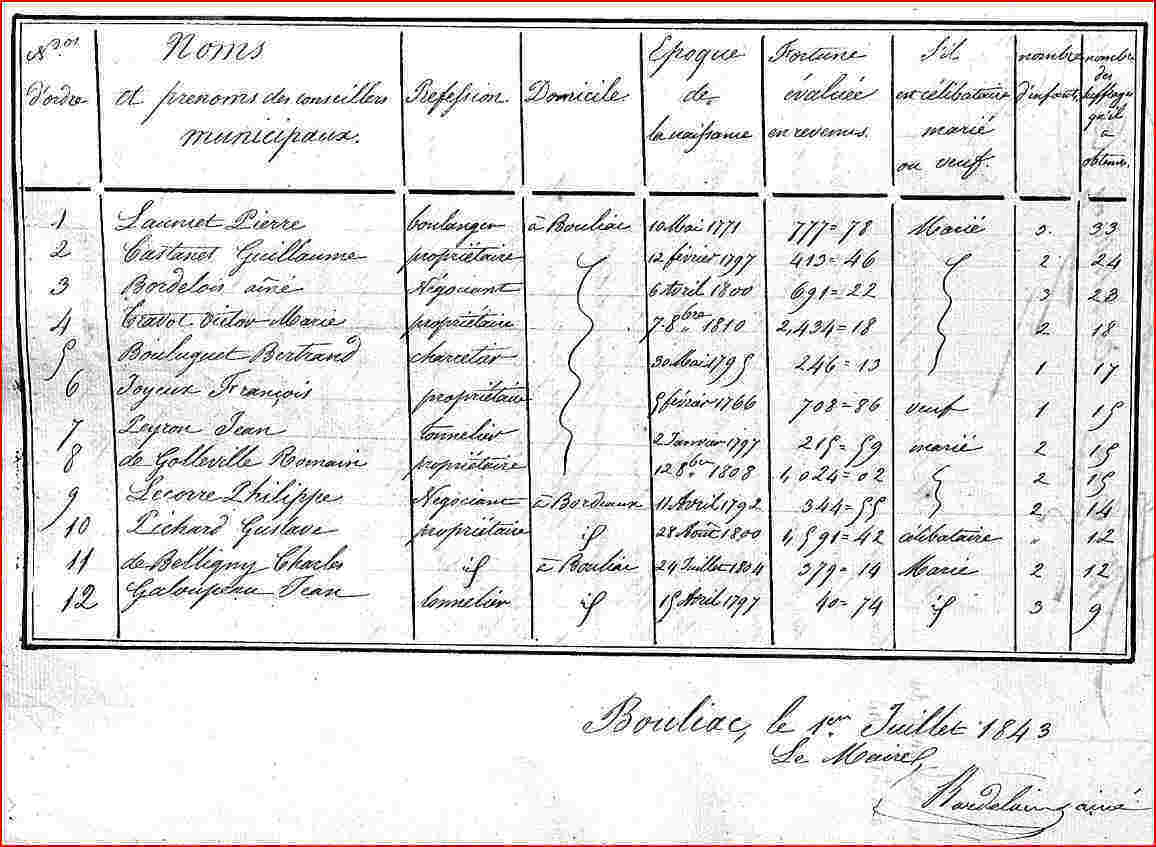 N.os d'ordre | Noms et prenoms des conseillers municipaux. | Profession. | Domicile. | Epoque de la naissance | Fortune évaluée en revenus. | S'il est célibataire marié ou veuf. | nombre d'infants. | nombre des suffrages qu'il a obtenus.
1 | Laumet Pierre | boulanger | à Bouliac | 10 Mai 1771 | 777=78 | Marié | 3. | 33
2 | Castanet Guillaume | propriétaire | 12 février 1797 | 413=46 | 2 | 24
3 | Bordelois aîné | Négociant | 6 Avril 1800 | 691=22 | 3 | 23
4 | Travot Victor Marie | propriétaire | 7 8bre 1810 | 2,434=18 | 2 | 18
5 | Bouluguet Bertrand | charretier | 30 Mai 1795 | 246=13 | 1 | 17
6 | Joyeux François | propriétaire | 5 février 1766 | 708=86 | veuf | 1 | 15
7 | Peyron Jean | tonnelier | 2 Janvier 1797 | 215=59 | marié | 2 | 15
8 | de Golleville Romain | propriétaire | 12 8bre 1808 | 1,024=02 | 2 | 15
9 | Lecorre Philippe | Négociant | à Bordeaux | 11 Avril 1792 | 344=55 | 2 | 14
10 | Pichard Gustave | propriétaire | id | 28 Août 1800 | 1,591=42 | célibataire | " | 12
11 | de Belligny Charles | id | à Bouliac | 24 Juillet 1804 | 379=14 | Marié | 2 | 12
12 | Galoupeau Jean | tonnelier | id | 15 Avril 1797 | 40=74 | id | 3 | 9
Bouliac, le 1er Juillet 1843
Le Maire,
Bordelois aîné